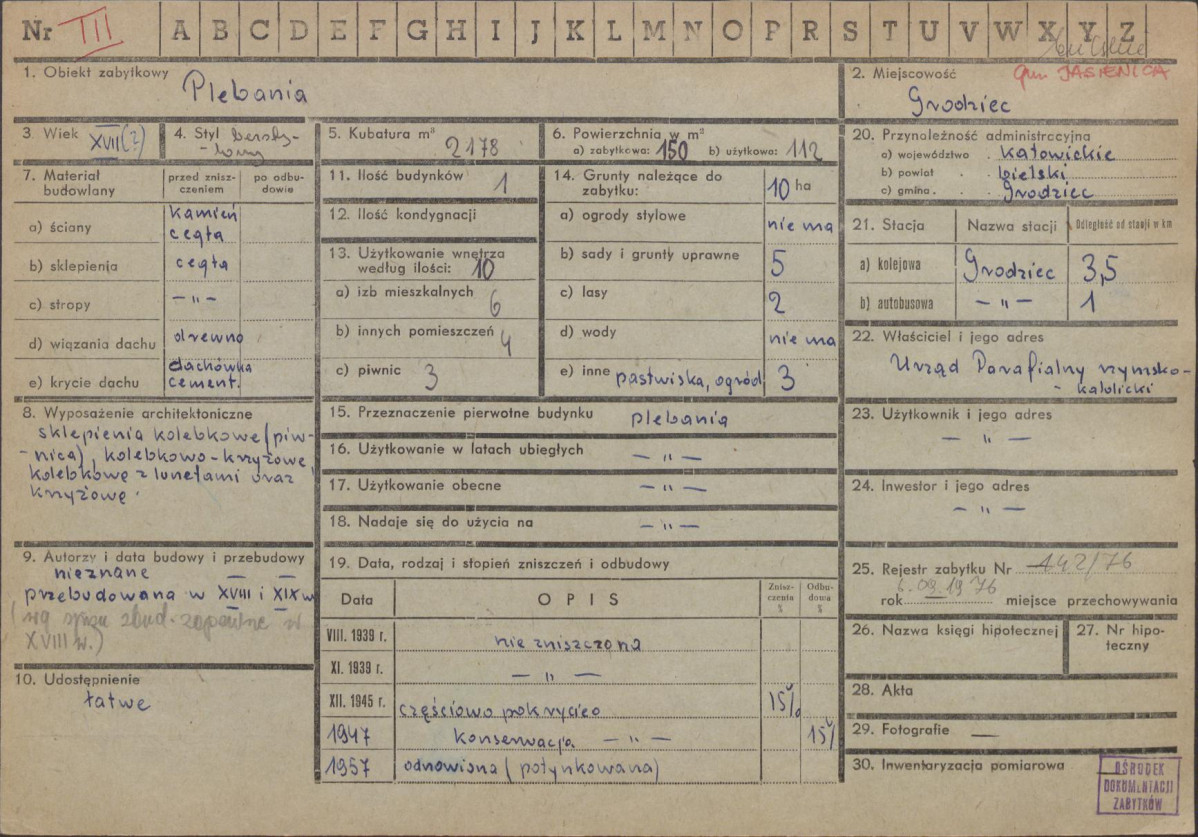 Nr III A B C D E F G H I J K L M N O P R S T U V W X Y Z
gm. JASIENICA
1. Obiekt zabytkowy
Plebania
2. Miejscowość
Grodziec
3. Wiek XVII(?)
4. Styl
5. Kubatura m³
2178
6. Powierzchnia w m²
a) zabytkowa: 150 b) użytkowa: 112
20. Przynależność administracyjna
a) województwo . katowickie
b) powiat . bielski
c) gmina . . Grodziec
7. Materiał budowlany
przed znisz-
czeniem
po odbu-
dowie
a) ściany
kamień
cegła
b) sklepienia cegła
c) stropy — „ —
d) wiązania dachu drewno
e) krycie dachu
dachówka
cement.
11. Ilość budynków 1
12. Ilość kondygnacji
13. Użytkowanie wnętrza
według ilości: 10
a) izb mieszkalnych
6
b) innych pomieszczeń
4
c) piwnic 3
14. Grunty należące do
zabytku:
10 ha
a) ogrody stylowe nie ma
b) sady i grunty uprawne 5
c) lasy 2
d) wody nie ma
e) inne pastwiska, ogród 3
21. Stacja Nazwa stacji Odległość od stacji w km
a) kolejowa Grodziec 3,5
b) autobusowa — „ — 1
22. Właściciel i jego adres
Urząd Parafialny rzymsko-
- katolicki
8. Wyposażenie architektoniczne
sklepienia kolebkowe (piw-
-nica), kolebkowo-krzyżowe,
kolebkowe z lunetami oraz
krzyżowe.
15. Przeznaczenie pierwotne budynku plebania
16. Użytkowanie w latach ubiegłych — „ —
17. Użytkowanie obecne — „ —
18. Nadaje się do użycia na — „ —
23. Użytkownik i jego adres
— „ —
24. Inwestor i jego adres
— „ —
9. Autorzy i data budowy i przebudowy
nieznane
przebudowana w XVIII i XIX w
zbud. zapewne w
XVIII w.)
10. Udostępnienie
łatwe
19. Data, rodzaj i stopień zniszczeń i odbudowy
Data OPIS
Znisz-
czenia
%
Odbu-
dowa
%
VIII. 1939 r. nie zniszczona
XI. 1939 r. — „ —
XII. 1945 r. częściowo pokrycie 15%
1947 konserwacja — „ — 15%
1957 odnowiona (potynkowana)
25. Rejestr zabytku Nr 142/76
rok 6.03.1976 miejsce przechowywania
26. Nazwa księgi hipotecznej
27. Nr hipo-
teczny
28. Akta
29. Fotografie —
30. Inwentaryzacja pomiarowa
OŚRODEK
DOKUMENTACJI
ZABYTKÓW